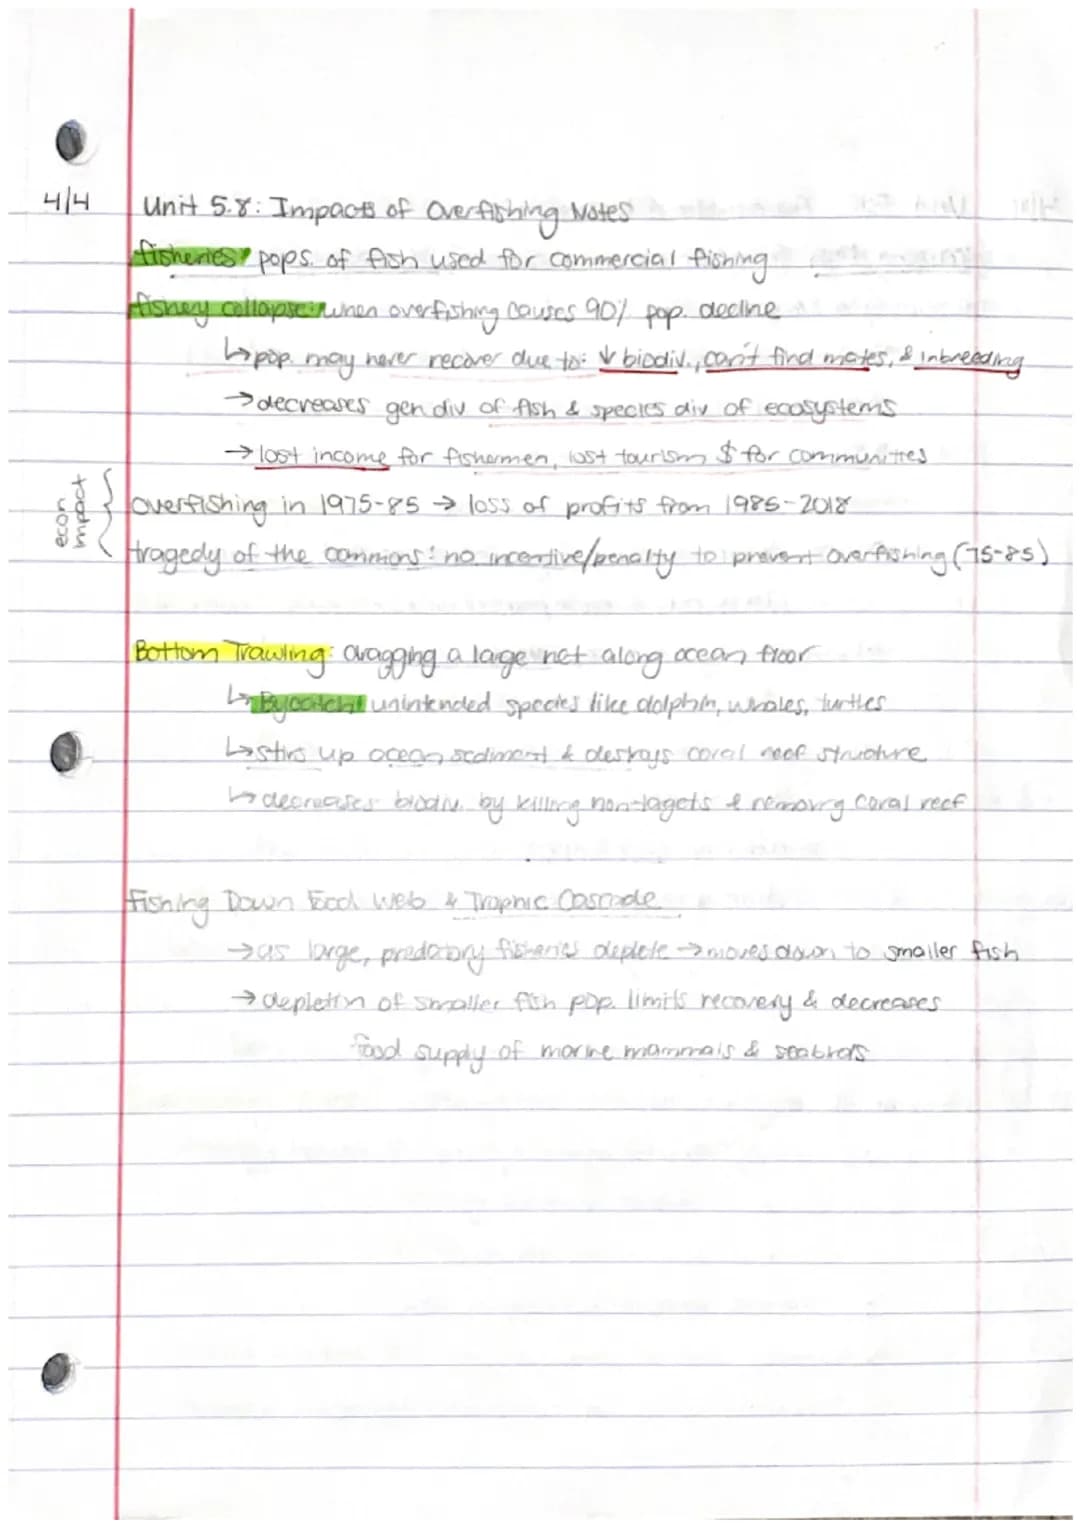 4/4 Unit 5.8: Impacts of Overfishing Notes
fisheries: pops. of fish used for commercial fishing
fishey collapse: when overfishing causes 90% pop. decline
↳ pop. may never recover due to: ↓ biodiv., can't find mates, & inbreeding
→ decreases gen div of fish & species div of ecosystems
→ lost income for fishermen, lost tourism $ for communities
econ impact { overfishing in 1975-85 → loss of profits from 1985-2018
tragedy of the commons: no incentive/penalty to prevent overfishing (75-85)
Bottom Trawling: dragging a large net along ocean floor
↳ Bycatch: unintended species like dolphin, whales, turtles
↳ stirs up ocean sediment & destroys coral reef structure
↳ decreases biodiv. by killing non-tagets & removing coral reef
Fishing Down Food Web & Trophic Cascade
→ as large, predatory fisheries deplete → moves down to smaller fish
→ depletion of smaller fish pop. limits recovery & decreases
food supply of marine mammals & seabirds